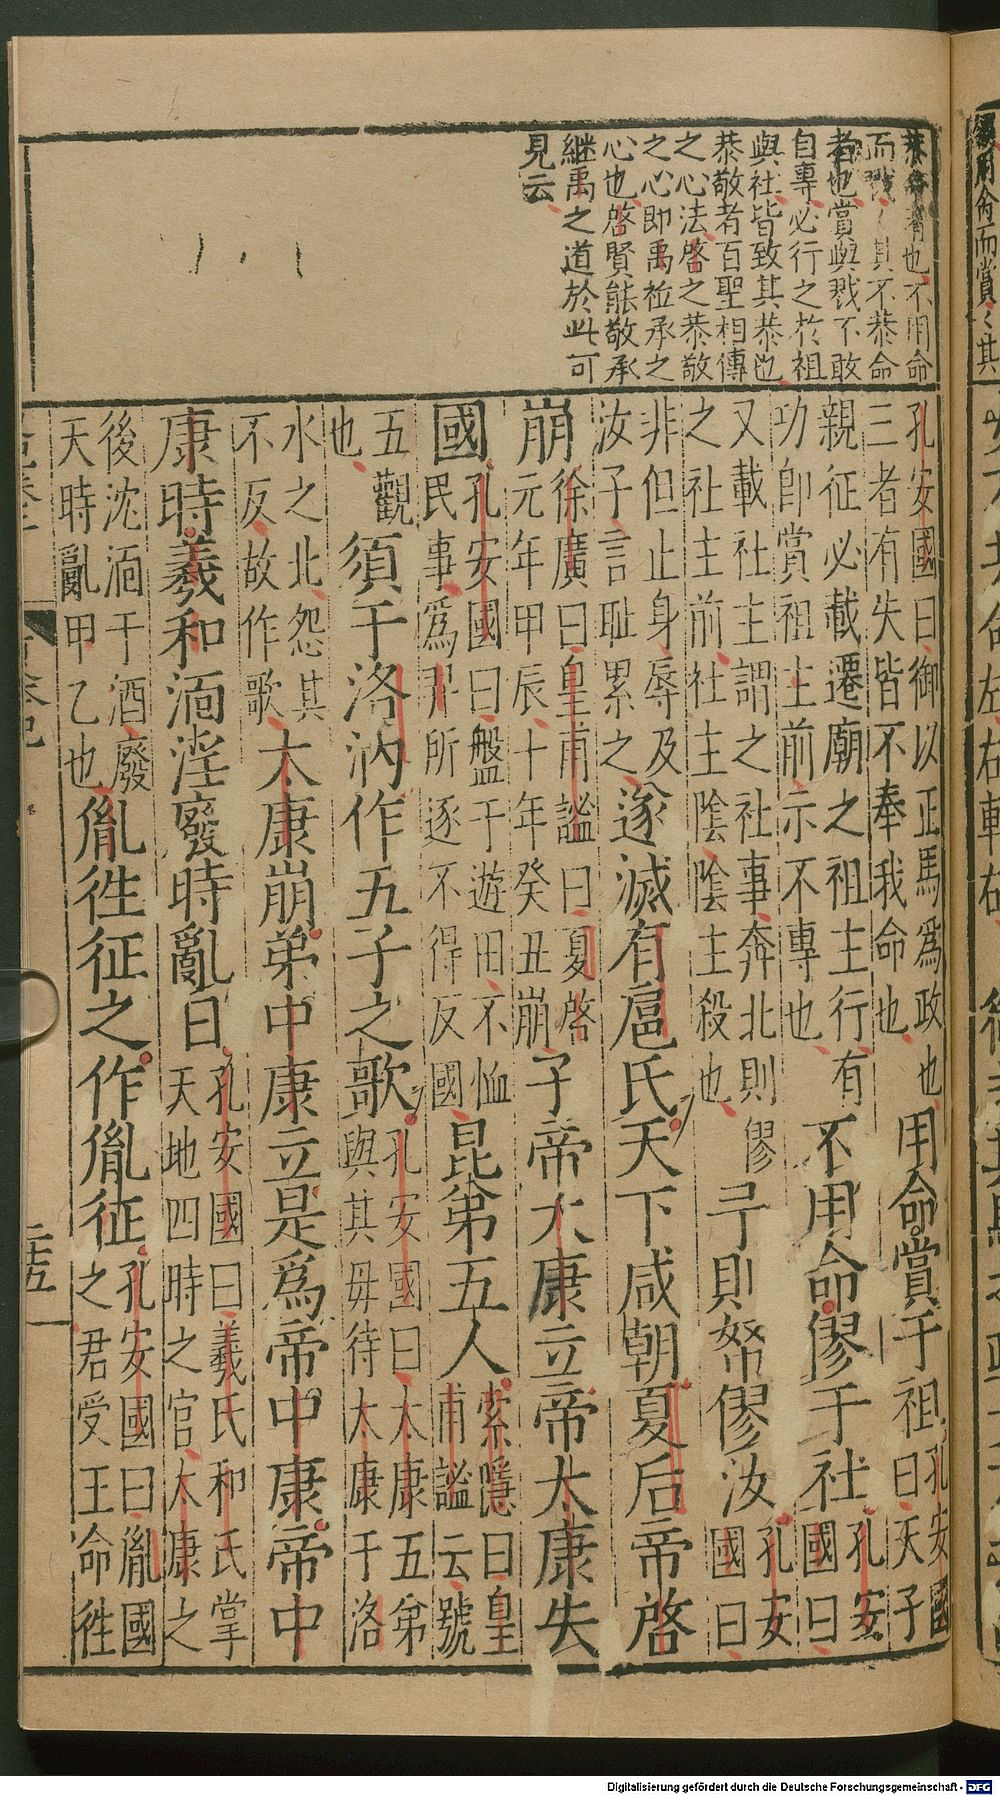 恭命者也不用命
而戮之其不恭命
者也賞與戮不敢
自專必行之於祖
與社皆致其恭也
恭敬者百聖相傳
之心法啓之恭敬
之心即禹祗承之
心也啓賢能敬承
継禹之道於此可
見云
孔安國曰御以正馬爲政也
三者有失皆不奉我命也
用命賞于祖
孔安國
曰天子
親征必載遷廟之祖主行有
功即賞祖主前示不專也
不用命僇于社
孔安
國曰
又載社主謂之社事奔北則
之社主前社主陰陰主殺也
僇
予則帑僇汝
孔安
國曰
非但止身辱及
汝子言耻累之
遂滅有扈氏天下咸朝夏后帝啓
崩
徐廣曰皇甫謐曰夏啓
元年甲辰十年癸丑崩
子帝太康立帝太康失
國
孔安國曰盤于遊田不恤
民事爲羿所逐不得反國
昆弟五人
索隱曰皇
甫謐云號
五觀
也
須于洛汭作五子之歌
孔安國曰太康五弟
與其母待太康于洛
水之北怨其
不反故作歌
太康崩弟中康立是爲帝中康帝中
康時羲和湎淫廢時亂日
孔安國曰羲氏和氏掌
天地四時之官太康之
後沈湎于酒廢
天時亂甲乙也
胤徃征之作胤征
孔安國曰胤國
之君受王命徃
二十五
用命而賞之其
Digitalisierung gefördert durch die Deutsche Forschungsgemeinschaft - DFG